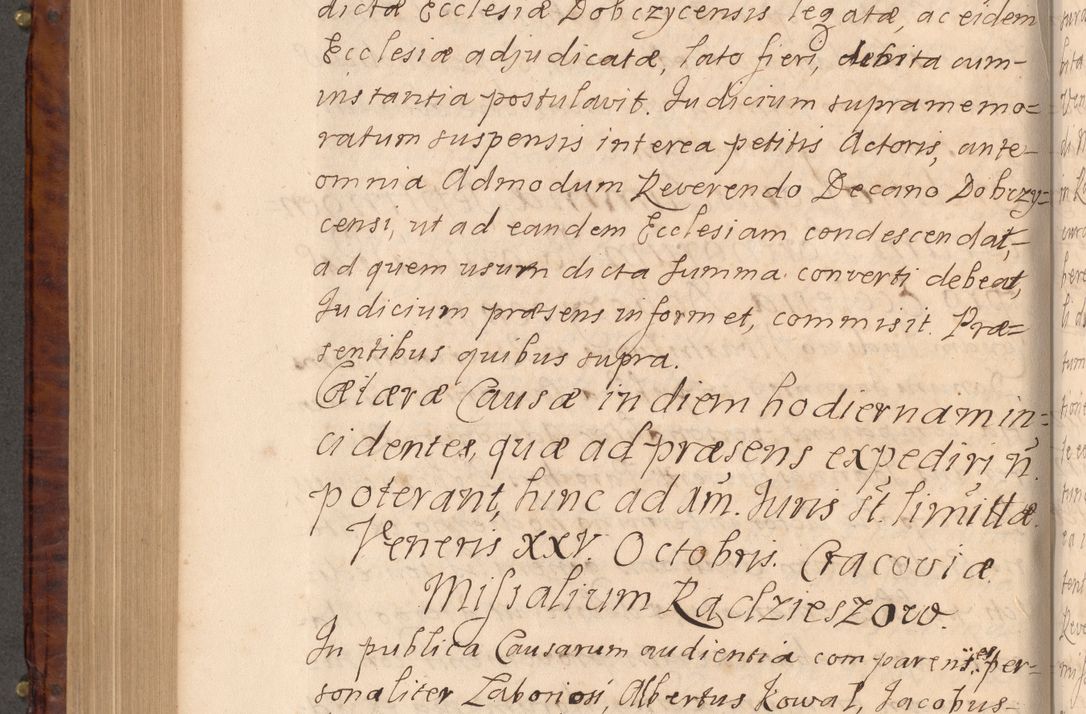 dictæ Ecclesiæ Dobczycensis legatæ, ac eidem
Ecclesiæ adjudicatæ, lato fieri, debita cum-
instantia postulavit. Judicium supramemo=
ratum suspensis interea petitis Actoris, ante
omnia Admodum Reverendo Decano Dobczy=
censi, ut ad eandem Ecclesiam condescendat,
ad quem usum dicta summa converti debeat,
Judicium præsens informet, commisit. Præ=
sentibus quibus supra.
Cæteræ Causæ in diem hodiernam in=
cidentes, quæ ad præsens expediri n̄.
poterant, hinc ad Am̄. Juris st. limittæ.
Veneris XXV. Octobris. Cracoviæ.
Missalium Radzieszow.
In publica Causarum audientia comparentes per-
sonaliter Laboriosi, Albertus Kowal, Jacobus-